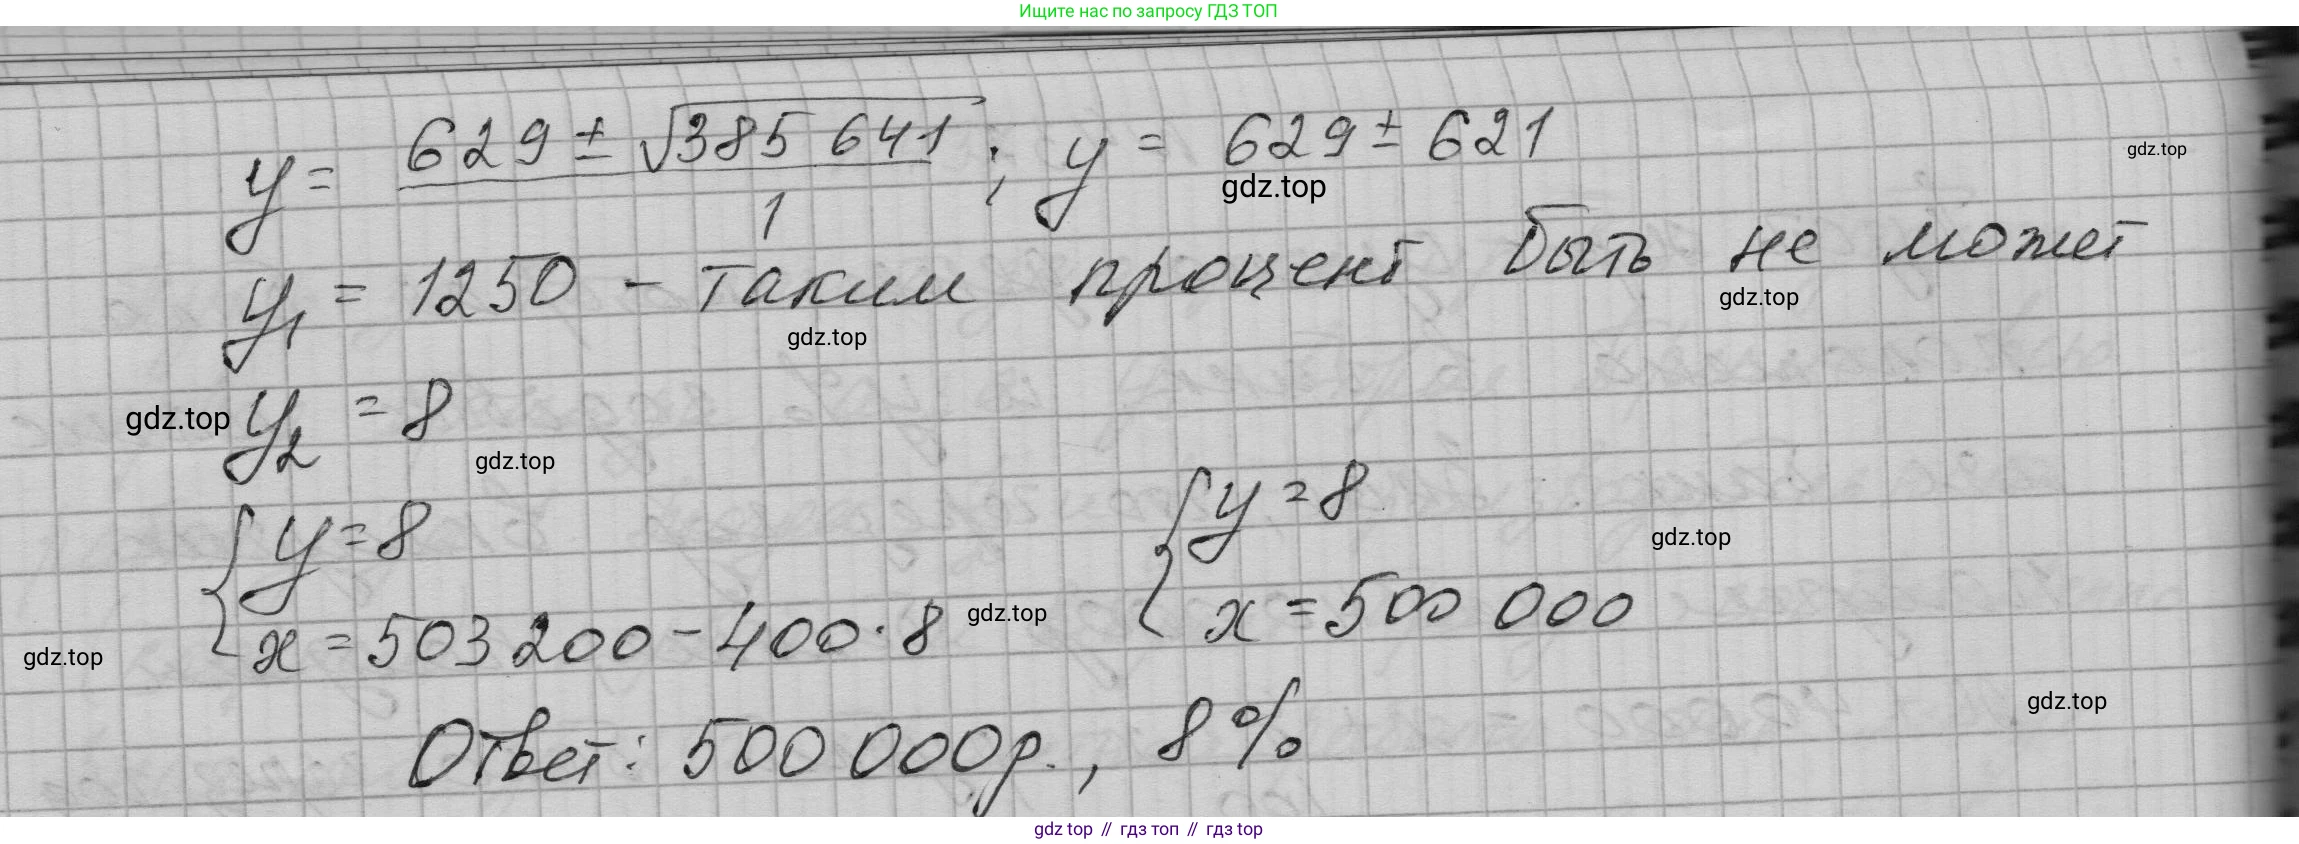 Ищите нас по запросу ГДЗ ТОП
y = (629 ± √385 641)/1 ; y = 629 ± 621
gdz.top
gdz.top
y₁ = 1250 – таким процент быть не может
gdz.top
gdz.top
y₂ = 8
gdz.top
gdz.top
{ y = 8
x = 503 200 – 400 · 8
{ y = 8
x = 500 000
gdz.top
gdz.top
gdz.top
gdz.top
Ответ: 500 000 р., 8 %
gdz top // гдз топ // гдз top